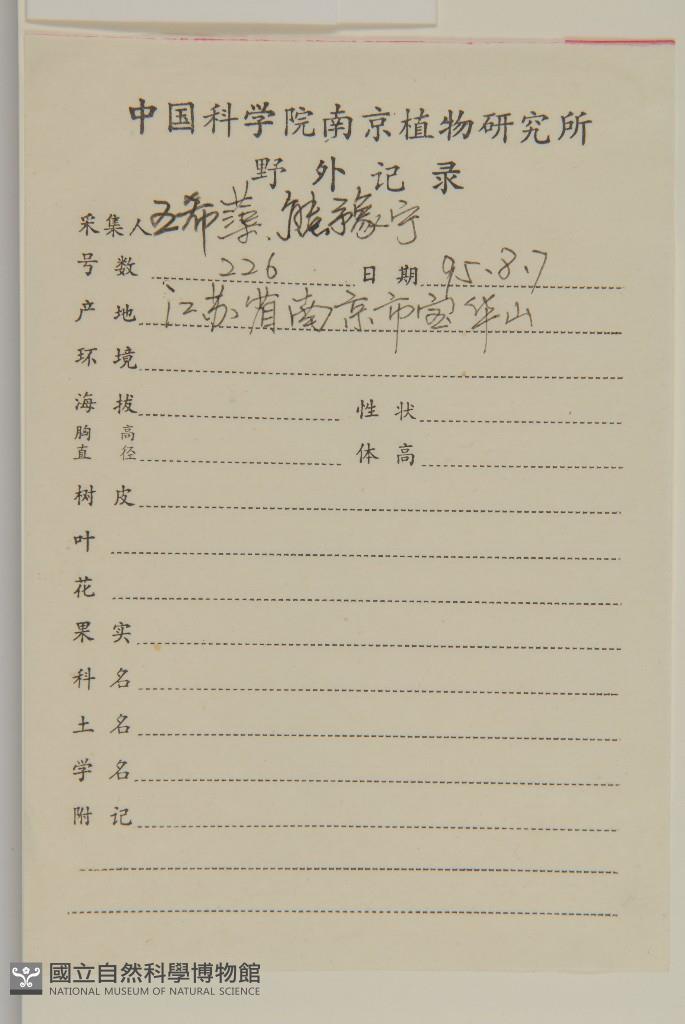 中国科学院南京植物研究所
野外记录
采集人 王希蕖、熊豫宁
号数 226 日期 95.8.7
产地 江苏省南京市宝华山
环境
海拔 性状
胸高直径 体高
树皮
叶
花
果实
科名
土名
学名
附记
國立自然科學博物館
NATIONAL MUSEUM OF NATURAL SCIENCE